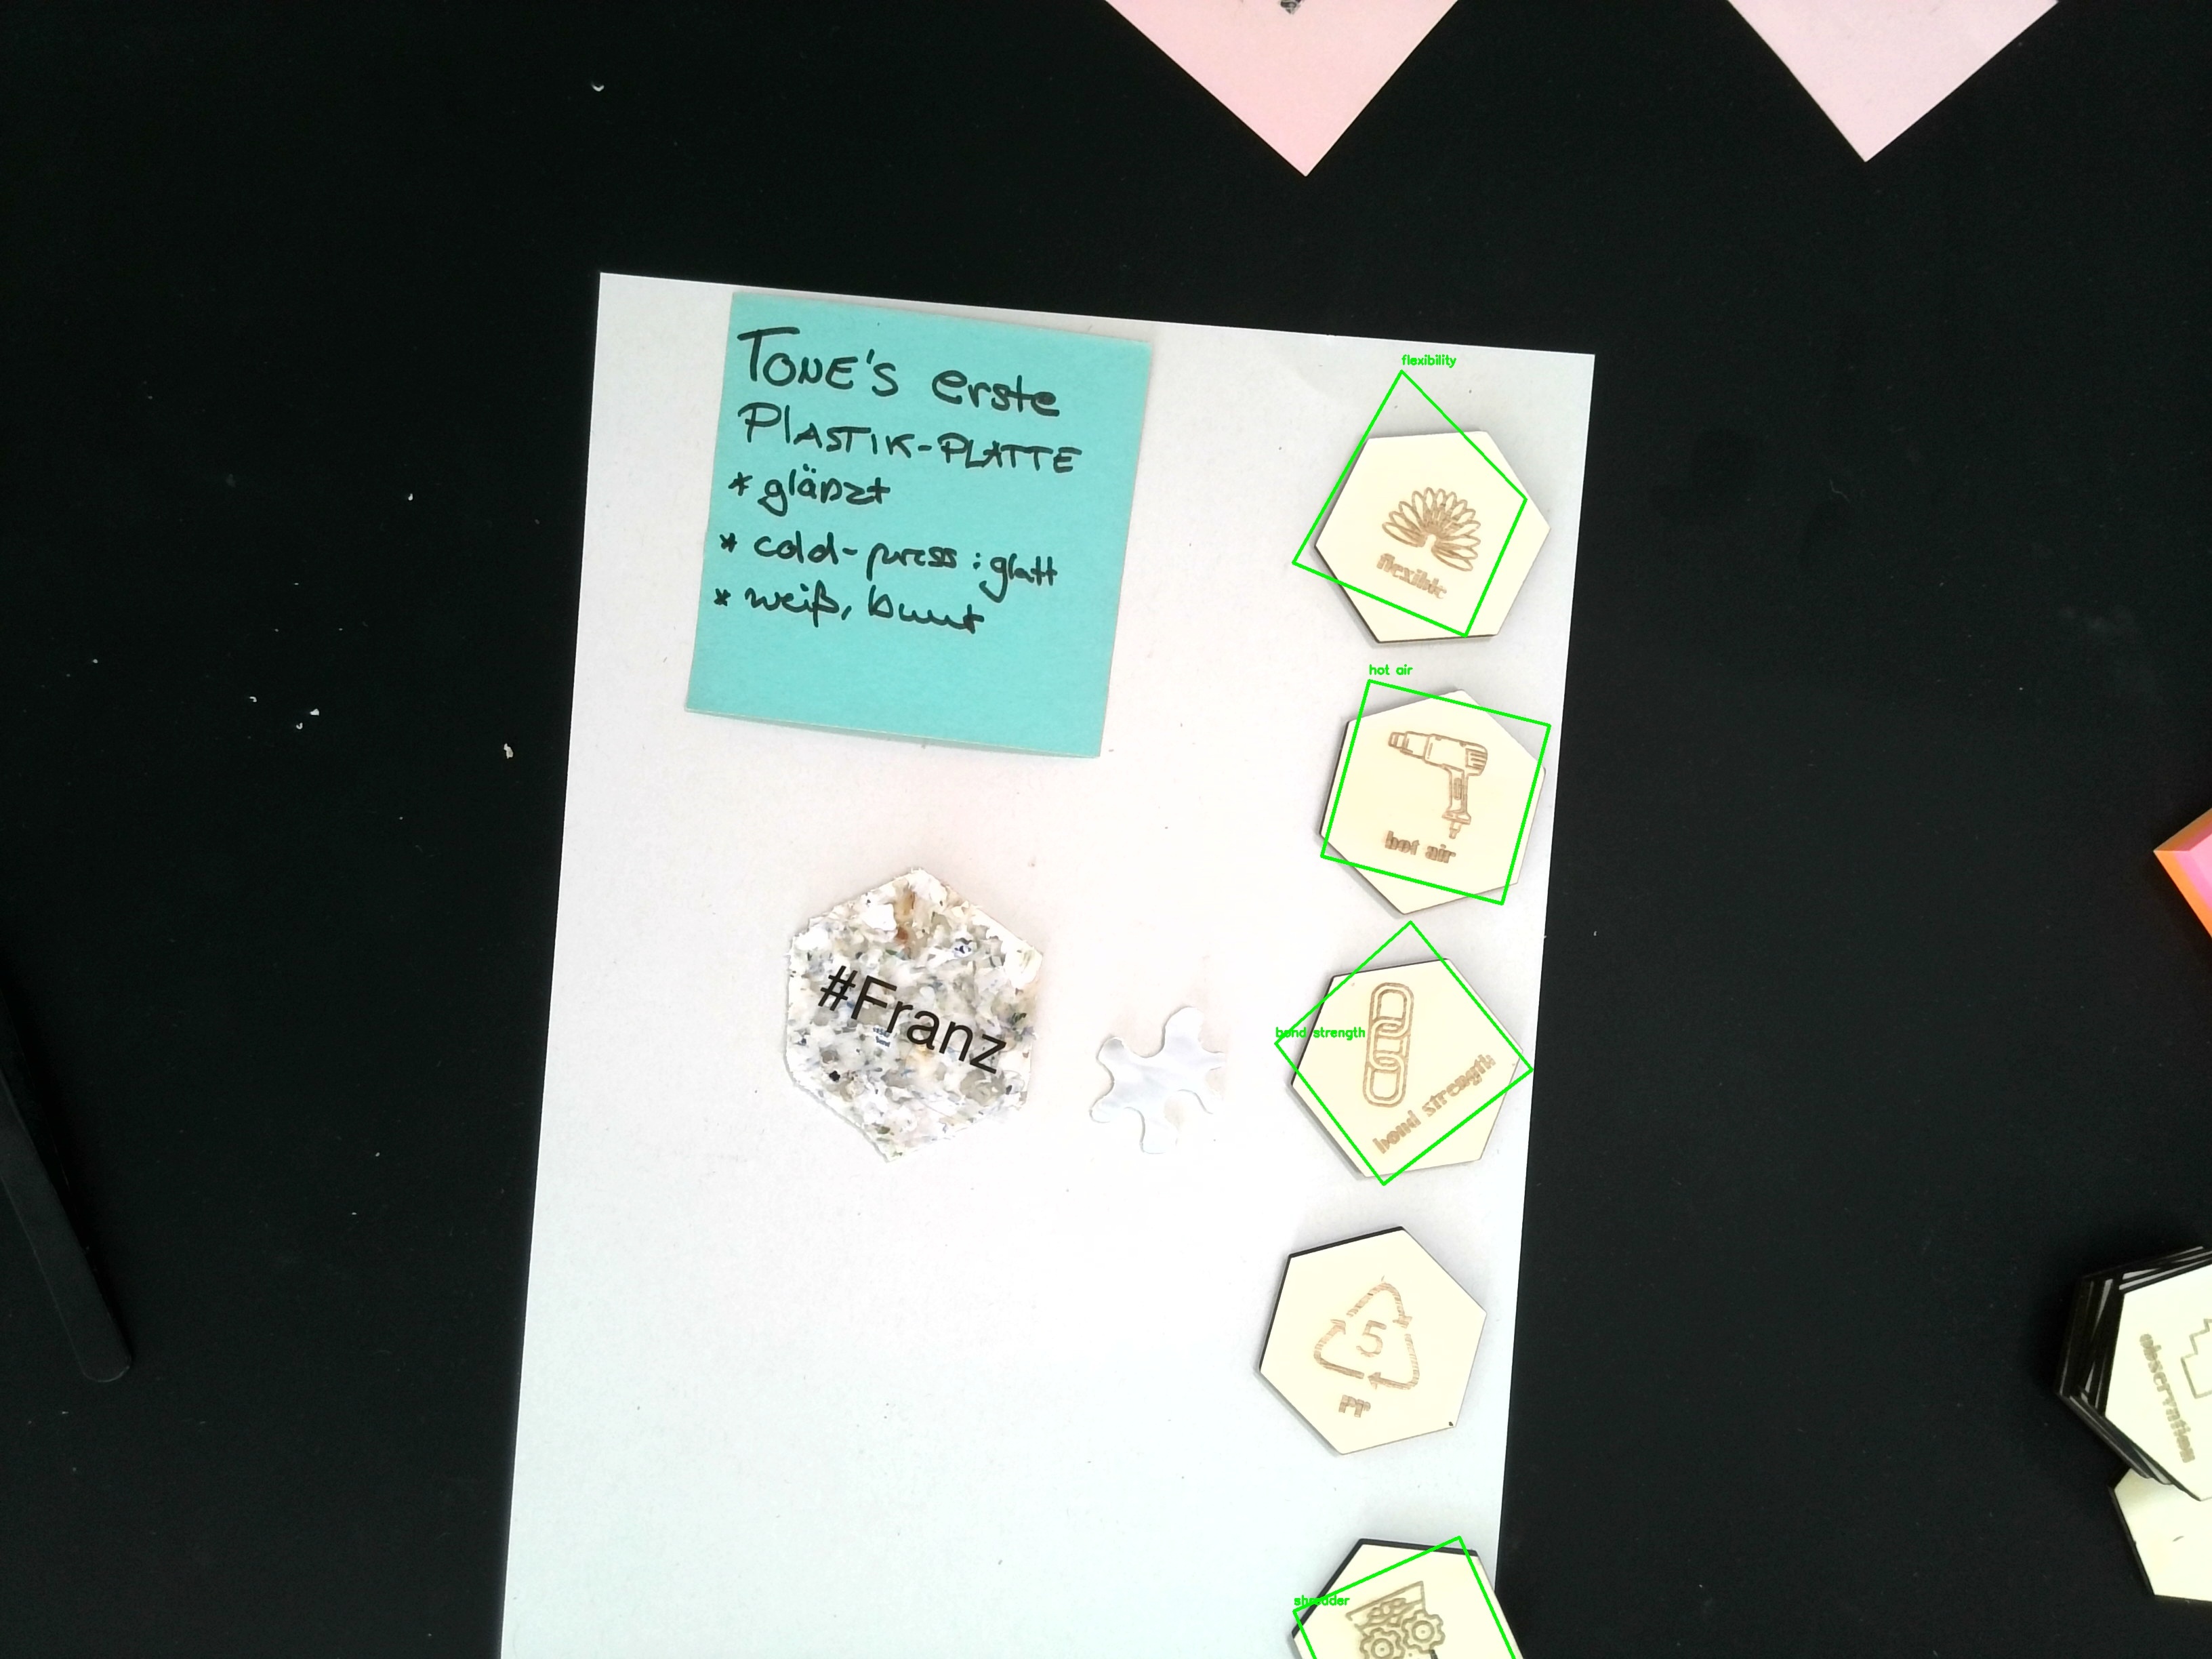 TONE'S erste
PLASTIK-PLATTE
* glänzt
* cold-press : glatt
* weiß, bunt
flexibility
flexible
hot air
hot air
#Franz
bond strength
bond strength
5
PP
shredder
observation